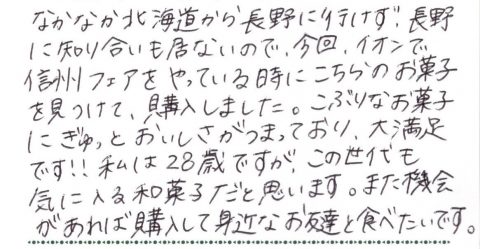 なかなか北海道から長野に行けず、長野
に知り合いも居ないので、今回、イオンで
信州フェアをやっている時にこちらのお菓子
を見つけて、購入しました。こぶりなお菓子
にぎゅっとおいしさがつまっており、大満足
です!! 私は28歳ですが、この世代も
気に入る和菓子だと思います。また機会
があれば購入して身近なお友達と食べたいです。